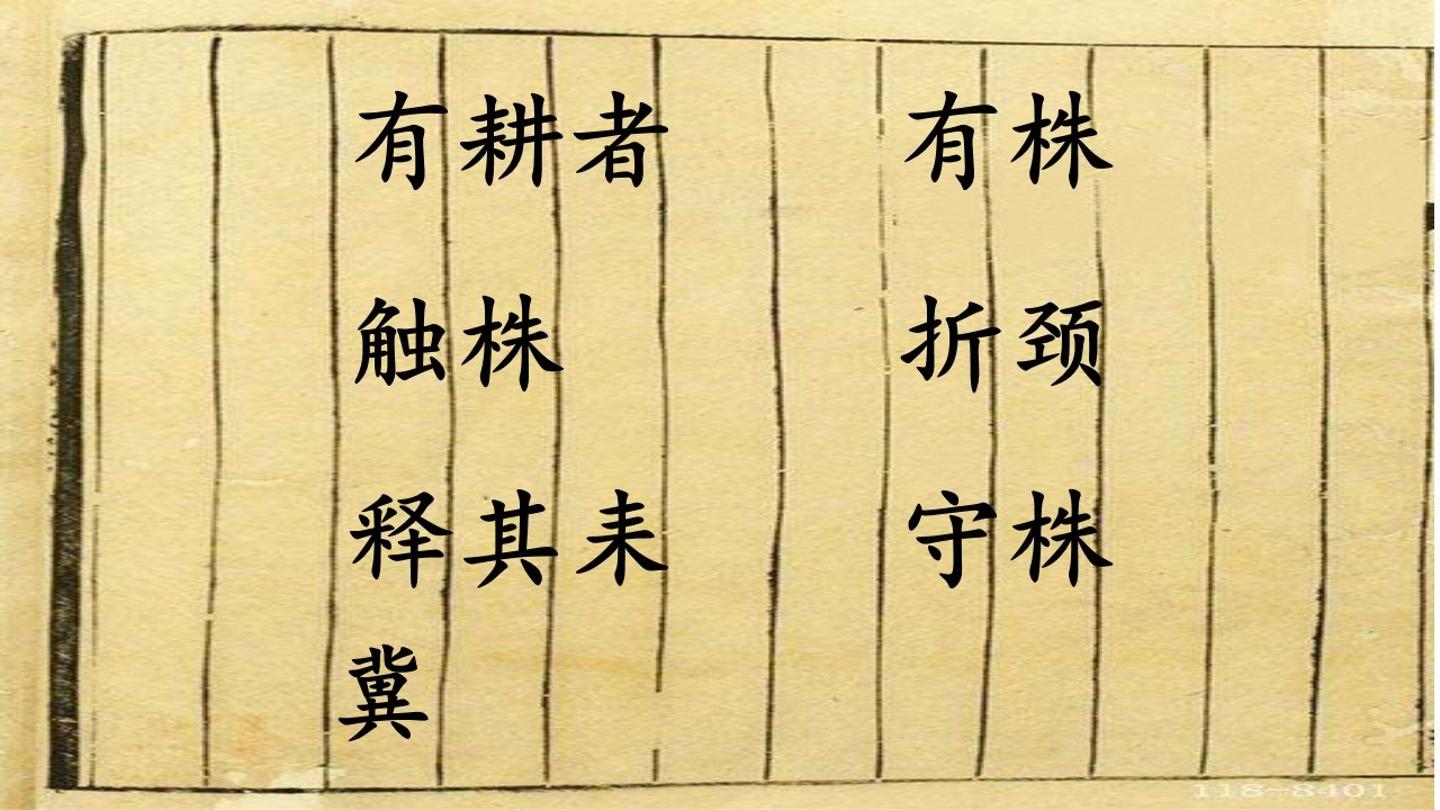 有耕者 有株
触株 折颈
释其耒 守株
冀
118-8401